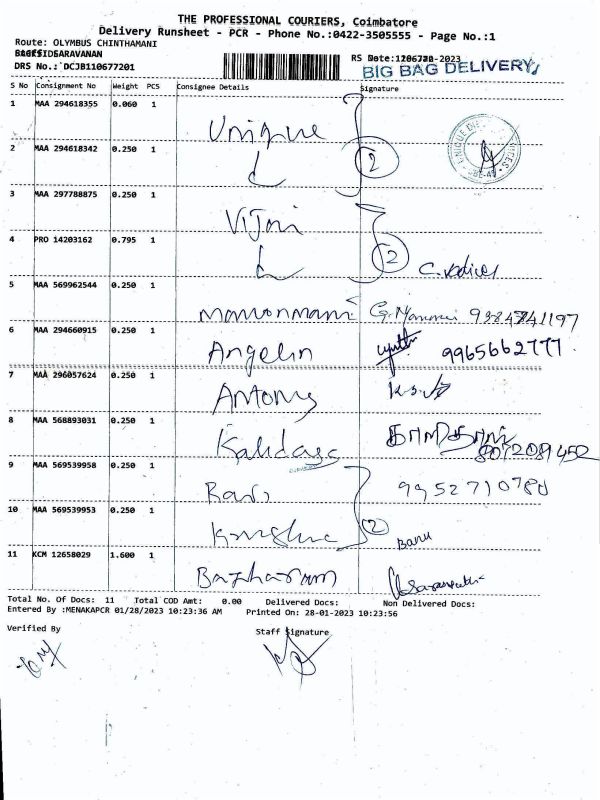 THE PROFESSIONAL COURIERS, Coimbatore
Delivery Runsheet - PCR - Phone No.:0422-3505555 - Page No.:1
Route: OLYMBUS CHINTHAMANI
SARAVANAN
DRS No.: DCJB110677201
BIG BAG DELIVERY
S No Consignment No Weight PCS Consignee Details Signature
1 MAA 294618355 0.060 1 Unique
2 MAA 294618342 0.250 1 2
3 MAA 297788875 0.250 1
4 PRO 14203162 0.795 1 2
5 MAA 569962544 0.250 1 Manonmani
6 MAA 294660915 0.250 1 Angelin 9965662777
7 MAA 296057624 0.250 1 Antony
8 MAA 568893031 0.250 1 Kalidass 8072081452
9 MAA 569539958 0.250 1 9952710780
10 MAA 569539953 0.250 1 2 Banu
11 KCM 12658029 1.600 1
Total No. Of Docs: 11 Total COD Amt: 0.00 Delivered Docs: Non Delivered Docs:
Entered By :MENAKAPCR 01/28/2023 10:23:36 AM Printed On: 28-01-2023 10:23:56
Verified By Staff Signature